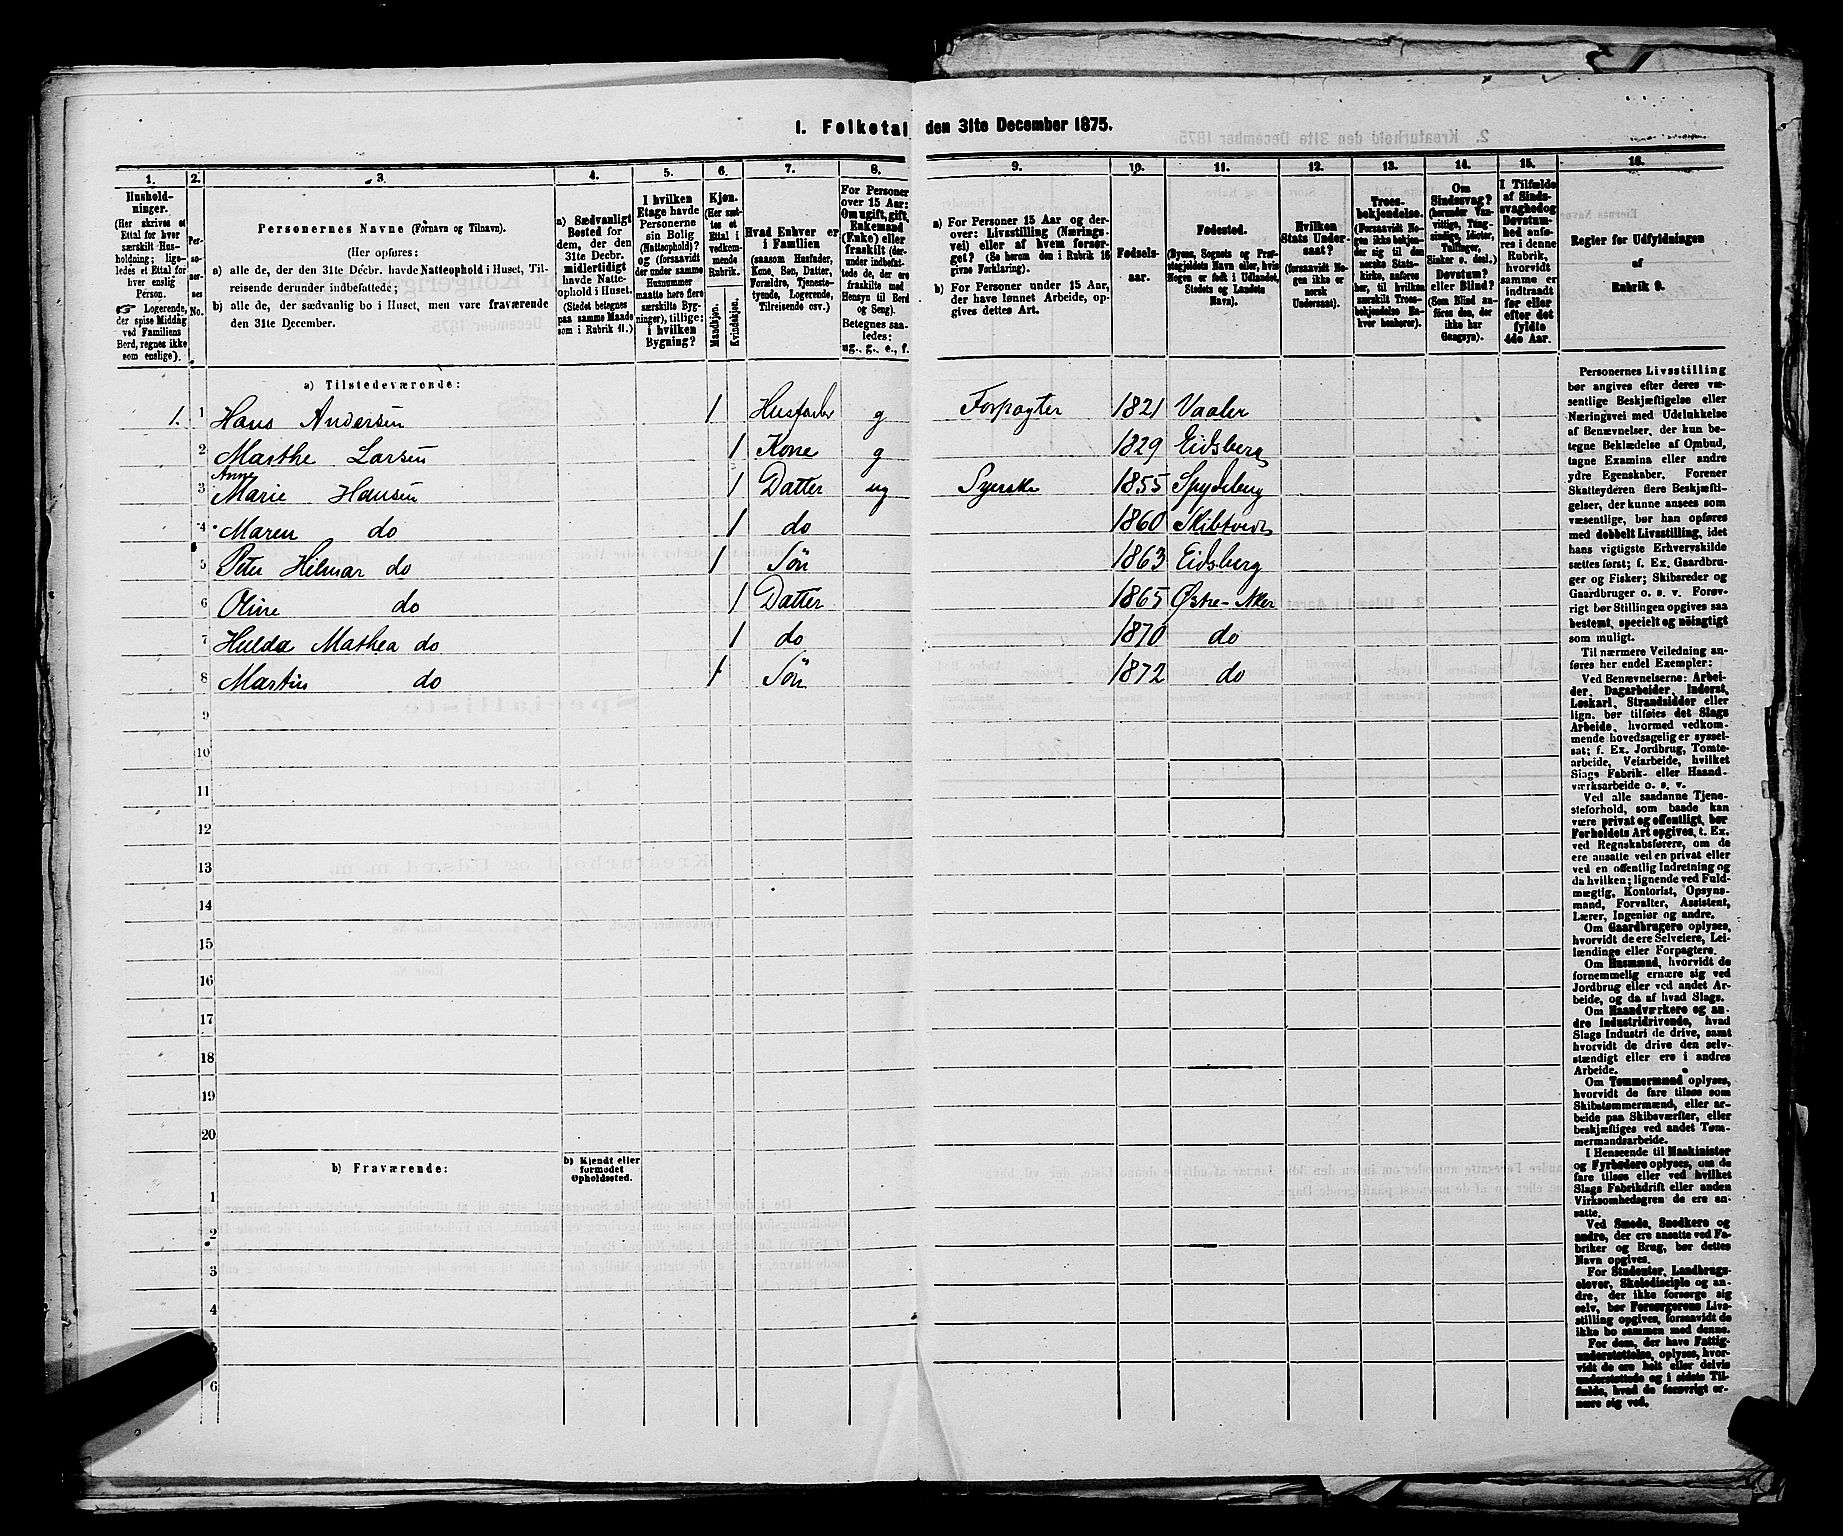 I. Folketal den 31te December 1875.
1.
2.
3.
4.
5.
6.
7.
8.
9.
10.
11.
12.
13.
14.
15.
16.
Hushold-
ninger.
(Her skrives et
Ettal for hver
særskilt Hus-
holdning; lige-
ledes et Ettal for
hver enslig
Person.
☞ Logerende,
der spise Middag
ved Familiens
Bord, regnes ikke
som enslige).
Per-
so-
ner-
nes
No.
Personernes Navne (Fornavn og Tilnavn).
(Her opføres:
a) alle de, der den 31te Decbr. havde Natteophold i Huset, Til-
reisende derunder indbefattede;
b) alle de, der sædvanlig bo i Huset, men vare fraværende
den 31te December.
a) Sædvanligt
Bosted for
dem, der den
31te Decbr.
midlertidigt
havde Natte-
ophold i Huset.
(Stedet betegnes
paa samme Maade
som i Rubrik 11.)
I hvilken
Etage havde
Personerne
sin Bolig
(Natteophold)?
og (forsaavidt
der under samme
Husnummer
maatte høre flere
særskilte Byg-
ninger), tillige:
i hvilken
Bygning?
Kjøn.
(Her sæt-
tes et
Ettal i
vedkom-
mende
Rubrik.
Mandkjøn.
Kvindekjøn.
Hvad Enhver er
i Familien
(saasom Husfader,
Kone, Søn, Datter,
Forældre, Tjeneste-
tyende, Logerende,
Tilreisende osv.)
For Personer
over 15 Aar:
Om ugift, gift,
Enkemand
(Enke) eller
fraskilt (der-
under indbefat-
tede de, der ere
fraskilte med
Hensyn til Bord
og Seng).
Betegnes saa-
ledes:
ug., g., e., f.
a) For Personer 15 Aar og der-
over: Livsstilling (Nærings-
vei) eller af hvem forsør-
get? (Se herom den i Rubrik 16
givne Forklaring).
b) For Personer under 15 Aar,
der have lønnet Arbeide, op-
gives dettes Art.
Fødsels-
aar.
Fødested.
(Byens, Sognets og Præ-
stegjeldets Navn eller, hvis
Nogen er født i Udlandet,
Stedets og Landets
Navn).
Hvilken
Stats Under-
saat?
(forsaavidt No-
gen ikke er
norsk
Undersaat).
Troes-
bekjendelse.
(Forsaavidt No-
gen ikke bekjen-
der sig til den
norske Stats-
kirke, anføres
her, til hvilken
særskilt Troes-
bekjendelse Ved-
kommende
henhører).
Om
Sindssvag?
(herunder Van-
vittige, Tung-
sindige, Idioter,
Tullinger,
Sinker o. desl.)
Døvstum?
eller Blind?
(Som Blind an-
føres den, der
ikke har
Gangsyn).
I Tilfælde
af Sinds-
svaghed og
Døvstum-
hed anfø-
res i denne
Rubrik,
hvorvidt
samme er
indtraadt
før eller
efter det
fyldte
4de Aar.
Regler for Udfyldningen
af
Rubrik 9.
a) Tilstedeværende:
1. 1 Hans Andersen 1 Husfader g Forpagter 1821 Vaaler
2 Marthe Larsen 1 Kone g 1829 Eidsberg
Anne
3 Marie Hansen 1 Datter ug Syerske 1855 Spydeberg
4 Maren do 1 do 1860 Skibtvedt
5 Peter Helmar do 1 Søn 1863 Eidsberg
6 Oline do 1 Datter 1865 Østre-Aker
7 Hulda Mathea do 1 do 1870 do
8 Martin do 1 Søn 1872 do
9
10
11
12
13
14
15
16
17
18
19
20
b) Fraværende:
b) Kjendt eller
formodet
Opholdssted.
1
2
3
4
6
Personernes Livsstilling
bør angives efter deres væ-
sentlige Beskjæftigelse eller
Næringsvei med Udelukkelse
af Benævnelser, der kun be-
tegne Beklædelse af Ombud,
tagne Examina eller andre
ydre Egenskaber. Forener
Skatteyderen flere Beskjæfti-
gelser, der kunne ansees som
væsentlige, bør han opføres
med dobbelt Livsstilling, idet
hans vigtigste Erhvervskilde
sættes først; f. Ex. Gaardbru-
ger og Fisker; Skibsreder og
Gaardbruger o. s. v. Forøv-
rigt bør Stillingen opgives saa
bestemt, specielt og nöiagtigt
som muligt.
Til nærmere Veiledning an-
føres her endel Exempler:
Ved Benævnelserne: Arbei-
der, Dagarbeider, Inderst,
Løskarl, Strandsidder eller
lign. bør tilføies det Slags
Arbeide, hvormed vedkom-
mende hovedsagelig er syssel-
sat; f. Ex. Jordbrug, Tomte-
arbeide, Veiarbeide, hvilket
Slags Fabrik- eller Haand-
værksarbeide o. s. v.
Ved alle saadanne Tjene-
steforhold, som baade kan
være privat og offentligt, bør
Forholdets Art opgives, t. Ex.
ved Regnskabsførere, om de
ere ansatte ved en privat eller
ved en offentlig Indretning og
da hvilken; lignende ved Fuld-
mægtig, Kontorist, Opsyns-
mand, Forvalter, Assistent,
Lærer, Ingeniør og andre.
Om Gaardbrugere oplyses,
hvorvidt de ere Selveiere, Lei-
lændinge eller Forpagtere.
Om Husmænd, hvorvidt de
fornemmelig ernære sig ved
Jordbrug eller ved andet Ar-
beide, og da af hvad Slags.
Om Haandværkere og an-
dre Industridrivende, hvad
Slags Industri de drive, samt
hvorvidt de drive den selv-
stændigt eller ere i andres
Arbeide.
Om Tømmermænd oplyses,
hvorvidt de fare tilsøs som
Skibstømmermænd, eller ar-
beide paa Skibsværfter, eller
beskjæftiges ved andet Tøm-
mermandsarbeide.
I Henseende til Maskinister
og Fyrbødere oplyses, om de
fare tilsøs eller ved hvilket
Slags Fabrikdrift eller anden
Virksomhedsgren de ere an-
satte.
Ved Smede, Snedkere og
andre, der ere ansatte ved Fa-
briker og Brug, bør dettes
Navn opgives.
For Studenter, Landbrugs-
elever, Skoledisciple og an-
dre, der ikke forsørge sig
selv, bør Forsørgerens Livs-
stilling opgives, forsaavidt de
ikke bo sammen med denne.
For dem, der have Fattig-
understøttelse, oplyses, hvor-
vidt de ere helt eller delvis
understøttede og i sidste Til-
fælde, hvad de forøvrigt er-
nære sig ved.